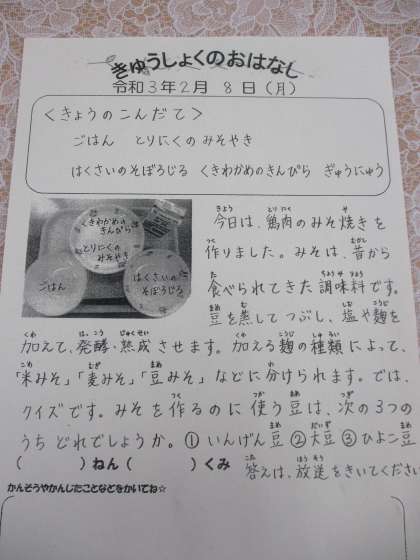 きゅうしょくのおはなし
令和3年2月 8日(月)
<きょうのこんだて>
ごはん とりにくのみそやき
はくさいのそぼろじる くきわかめのきんぴら ぎゅうにゅう
くきわかめの
きんぴら
とりにくの
みそやき
ごはん
はくさいの
そぼろじる
今日は、鶏肉のみそ焼きを
作りました。みそは、昔から
食べられてきた調味料です。
豆を蒸してつぶし、塩や麹を
加えて、発酵・熟成させます。加える麹の種類によって、
「米みそ」「麦みそ」「豆みそ」などに分けられます。では、
クイズです。みそを作るのに使う豆は、次の3つの
うちどれでしょうか。①いんげん豆 ②大豆 ③ひよこ豆
( )ねん( )くみ 答えは、放送をきいてください
かんそうやかんじたことなどをかいてね☆